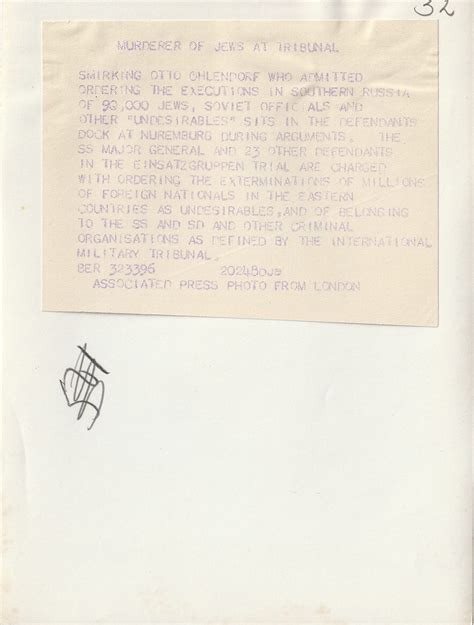 32
MURDERER OF JEWS AT TRIBUNAL
SMIRKING OTTO OHLENDORF WHO ADMITTED
ORDERING THE EXECUTIONS IN SOUTHERN RUSSIA
OF 90,000 JEWS, SOVIET OFFICIALS AND
OTHER "UNDESIRABLES" SITS IN THE DEFENDANTS
DOCK AT NUREMBURG DURING ARGUMENTS. THE
SS MAJOR GENERAL AND 23 OTHER DEFENDANTS
IN THE EINSATZGRUPPEN TRIAL ARE CHARGED
WITH ORDERING THE EXTERMINATIONS OF MILLIONS
OF FOREIGN NATIONALS IN THE EASTERN
COUNTRIES AS UNDESIRABLES, AND OF BELONGING
TO THE SS AND SD AND OTHER CRIMINAL
ORGANISATIONS AS DEFINED BY THE INTERNATIONAL
MILITARY TRIBUNAL.
BER 323396
ASSOCIATED PRESS PHOTO FROM LONDON